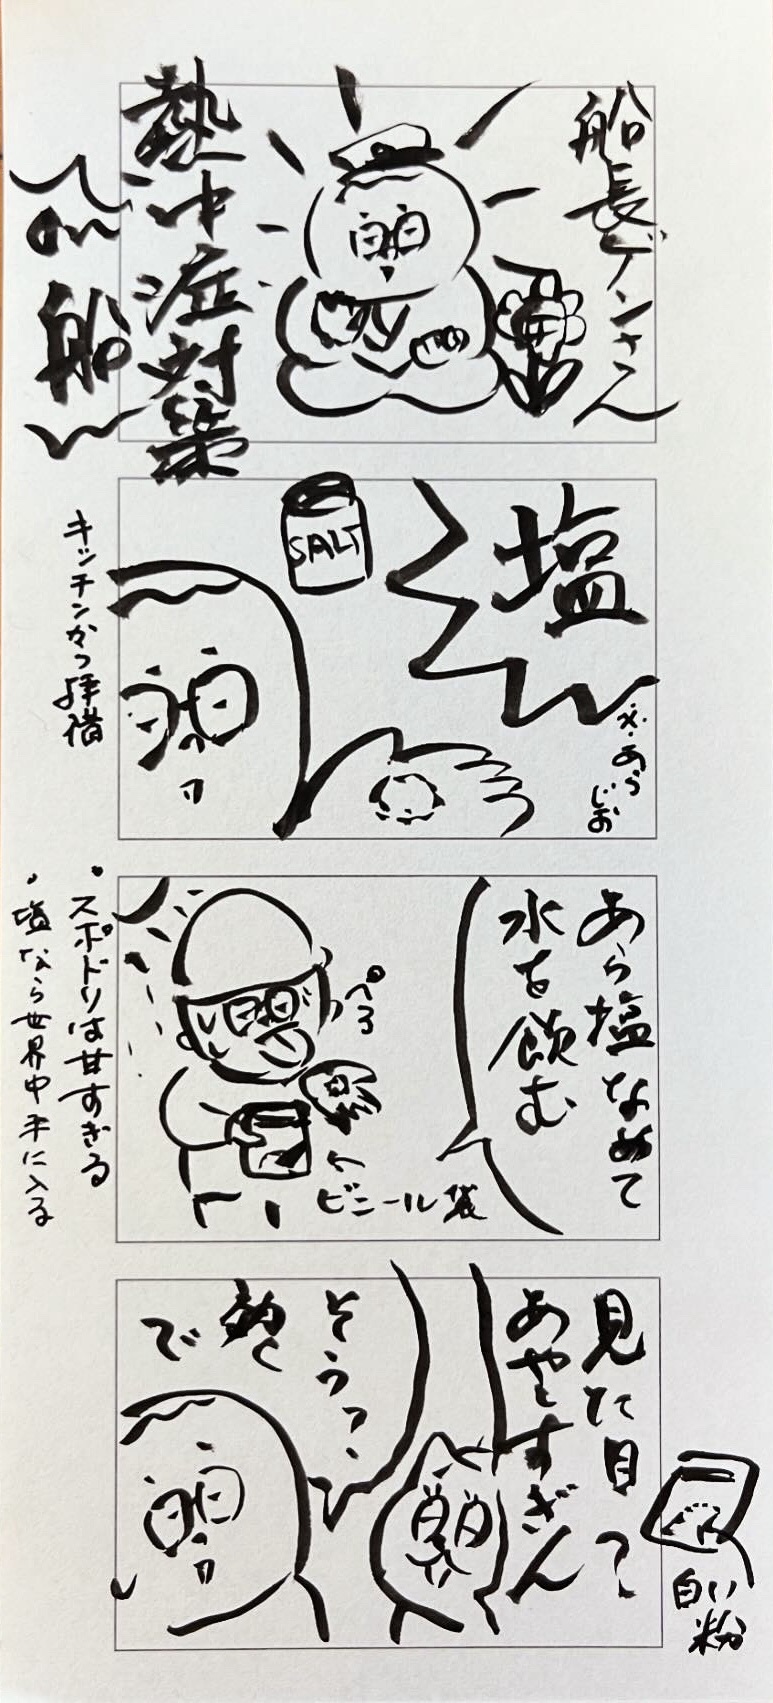 船長デンさん
熱中症対策
船
塩
※あらじお
SALT
キッチンから拝借
あら塩なめて
水を飲む
ぺろ
←ビニール袋
・スポドリは甘すぎる
・塩なら世界中手に入る
見た目
あやしすぎん
効く
で
白い粉